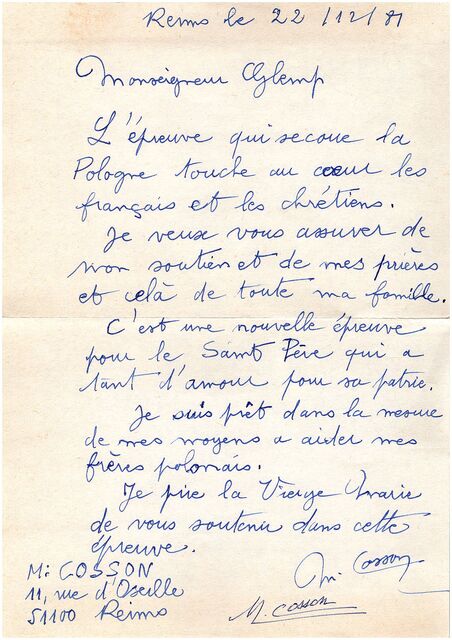 Reims le 22/12/81
Monseigneur Glemp
L'épreuve qui secoue la
Pologne touche au cœur les
français et les chrétiens.
Je veux vous assurer de
mon soutien et de mes prières
et celà de toute ma famille.
C'est une nouvelle épreuve
pour le Saint Père qui a
tant d'amour pour sa patrie.
Je suis prêt dans la mesure
de mes moyens a aider mes
frères polonais.
Je prie la Vierge Marie
de vous soutenir dans cette
épreuve.
M: COSSON
11, rue d'Oseille
51100 Reims
Cosson
M. Cosson